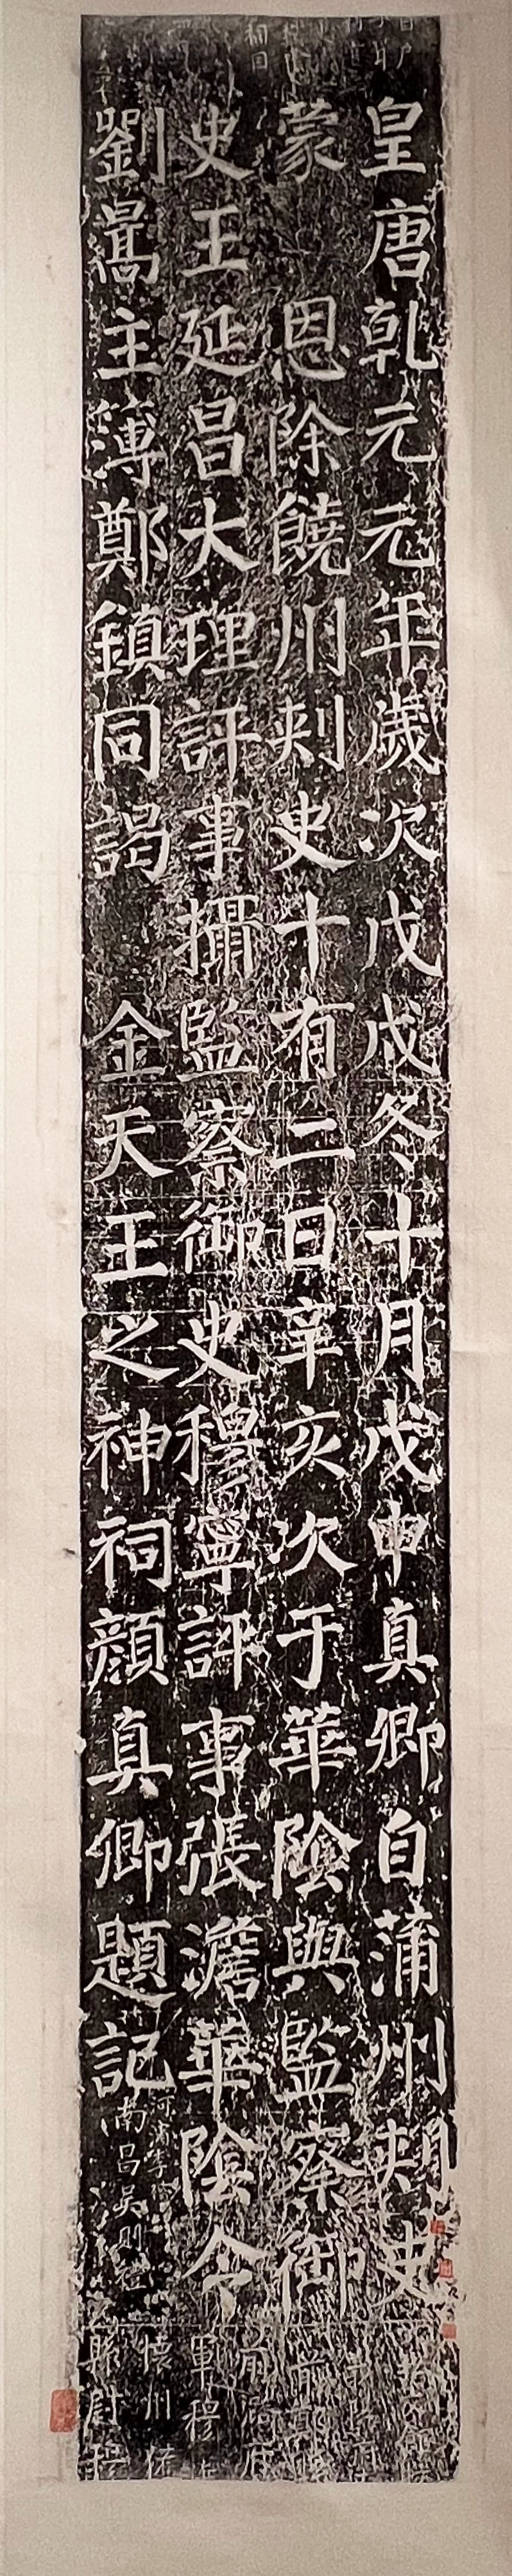 皇唐乹元元年歲次戊戌冬十月戊申真卿自蒲州刾史
蒙　恩除饒州刾史十有二日辛亥次于華陰與監察御
史王延昌大理評事攝監察御史穆寧評事張澹華陰令
劉暠主簿鄭鎮同謁　金天王之神祠顏真卿題記
南昌吳
懷州
軍穆